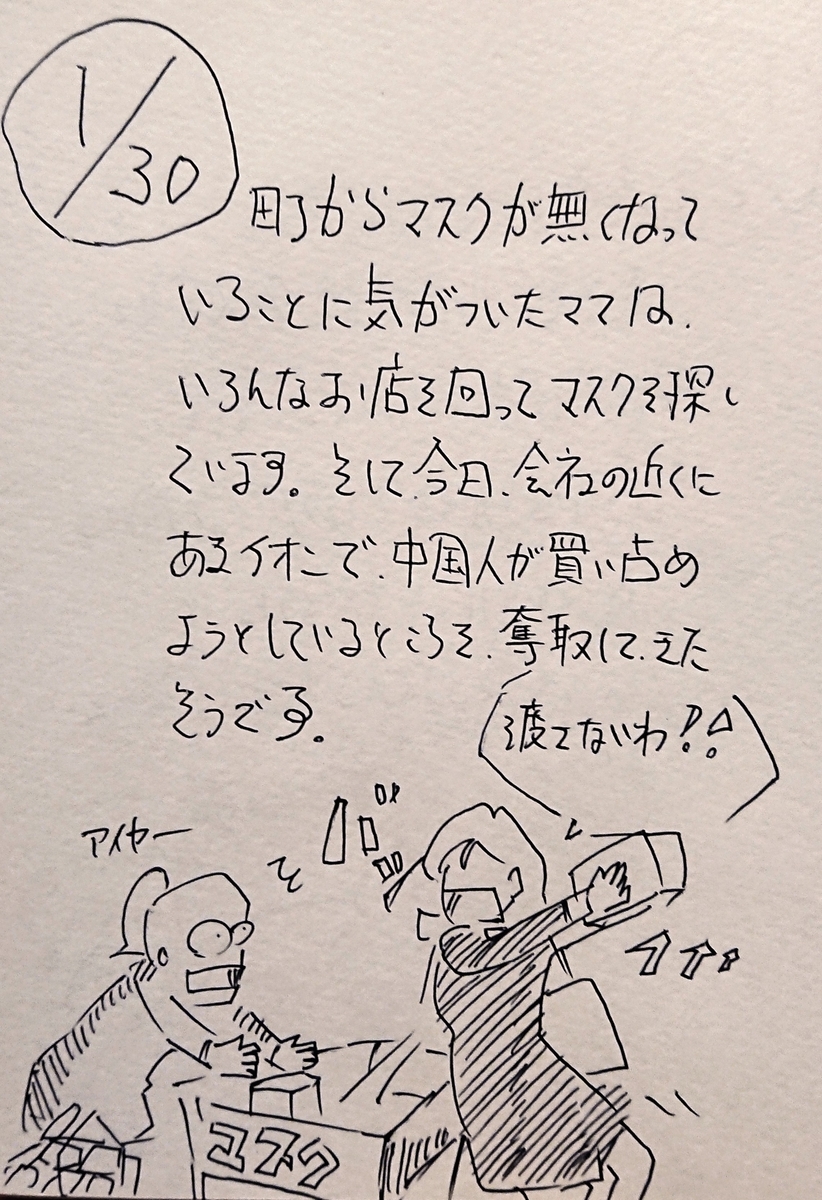 1/30
町からマスクが無くなって
いることに気がついたママは、
いろんなお店を回ってマスクを探し
ています。そして、今日、会社の近くに
あるイオンで、中国人が買い占め
ようとしているところを、奪取して、きた
そうです。
渡さないわ!!
アイヤー
マスク